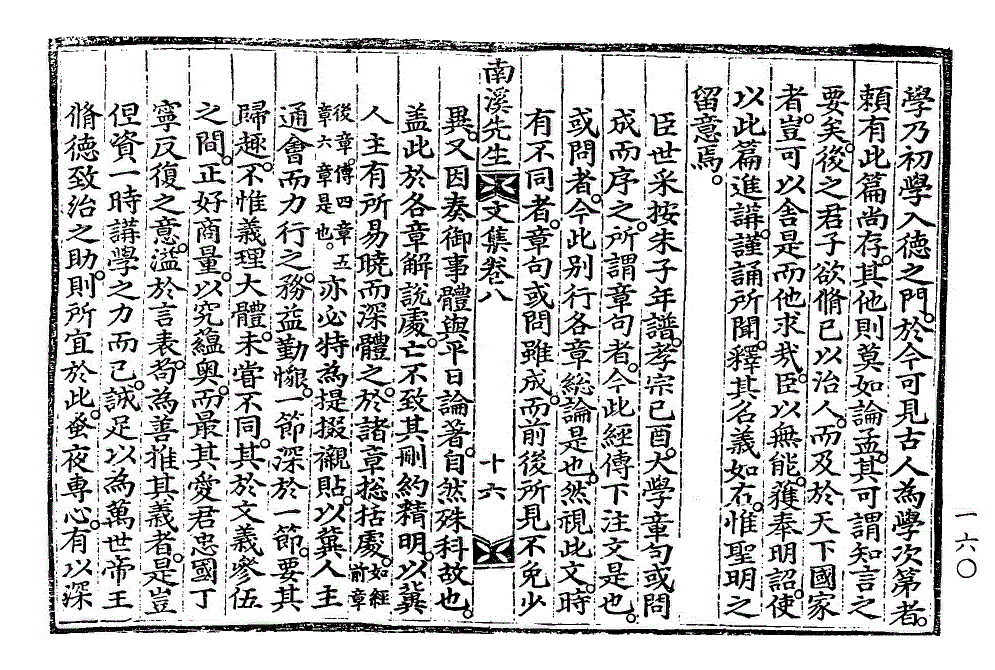 學乃初學入德之門。於今可見古人為學次第者。
頼有此篇尚存。其他則莫如論孟。其可謂知言之
要矣。後之君子欲脩己以治人。而及於天下國家
者。豈可以舍是而他求㢤。臣以無能。獲奉明詔。使
以此篇進講。謹誦所聞。釋其名義如右。惟聖明之
留意焉。
臣世采按朱子年譜。孝宗己酉。大學章句或問
成而序之。所謂章句者。今此經傳下注文是也。
或問者。今此別行各章総論是也。然視此文。時
有不同者。章句或問雖成。而前後所見不免少
異。又因奏御事體與平日論著。自然殊科故也。
南溪先生文集卷八
十六
盖此於各章解說處。亡不致其刪約精明。以冀
人主有所易曉而深體之。於諸章捴括處。如經前章
後章。傳四章五
章六章是也。亦必特為提掇襯貼。以冀人主
通會而力行之。務益勤懇。一節深於一節。要其
歸趣。不惟義理大體。未甞不同。其於文義參伍
之間。正好商量。以究蘊奥。而最其愛君忠國丁
寧反復之意。溢於言表。茍為善推其義者。是豈
但資一時講學之力而已。誠足以為萬世帝王
脩德致治之助。則所宜於此。蚤夜專心。有以深
一六〇